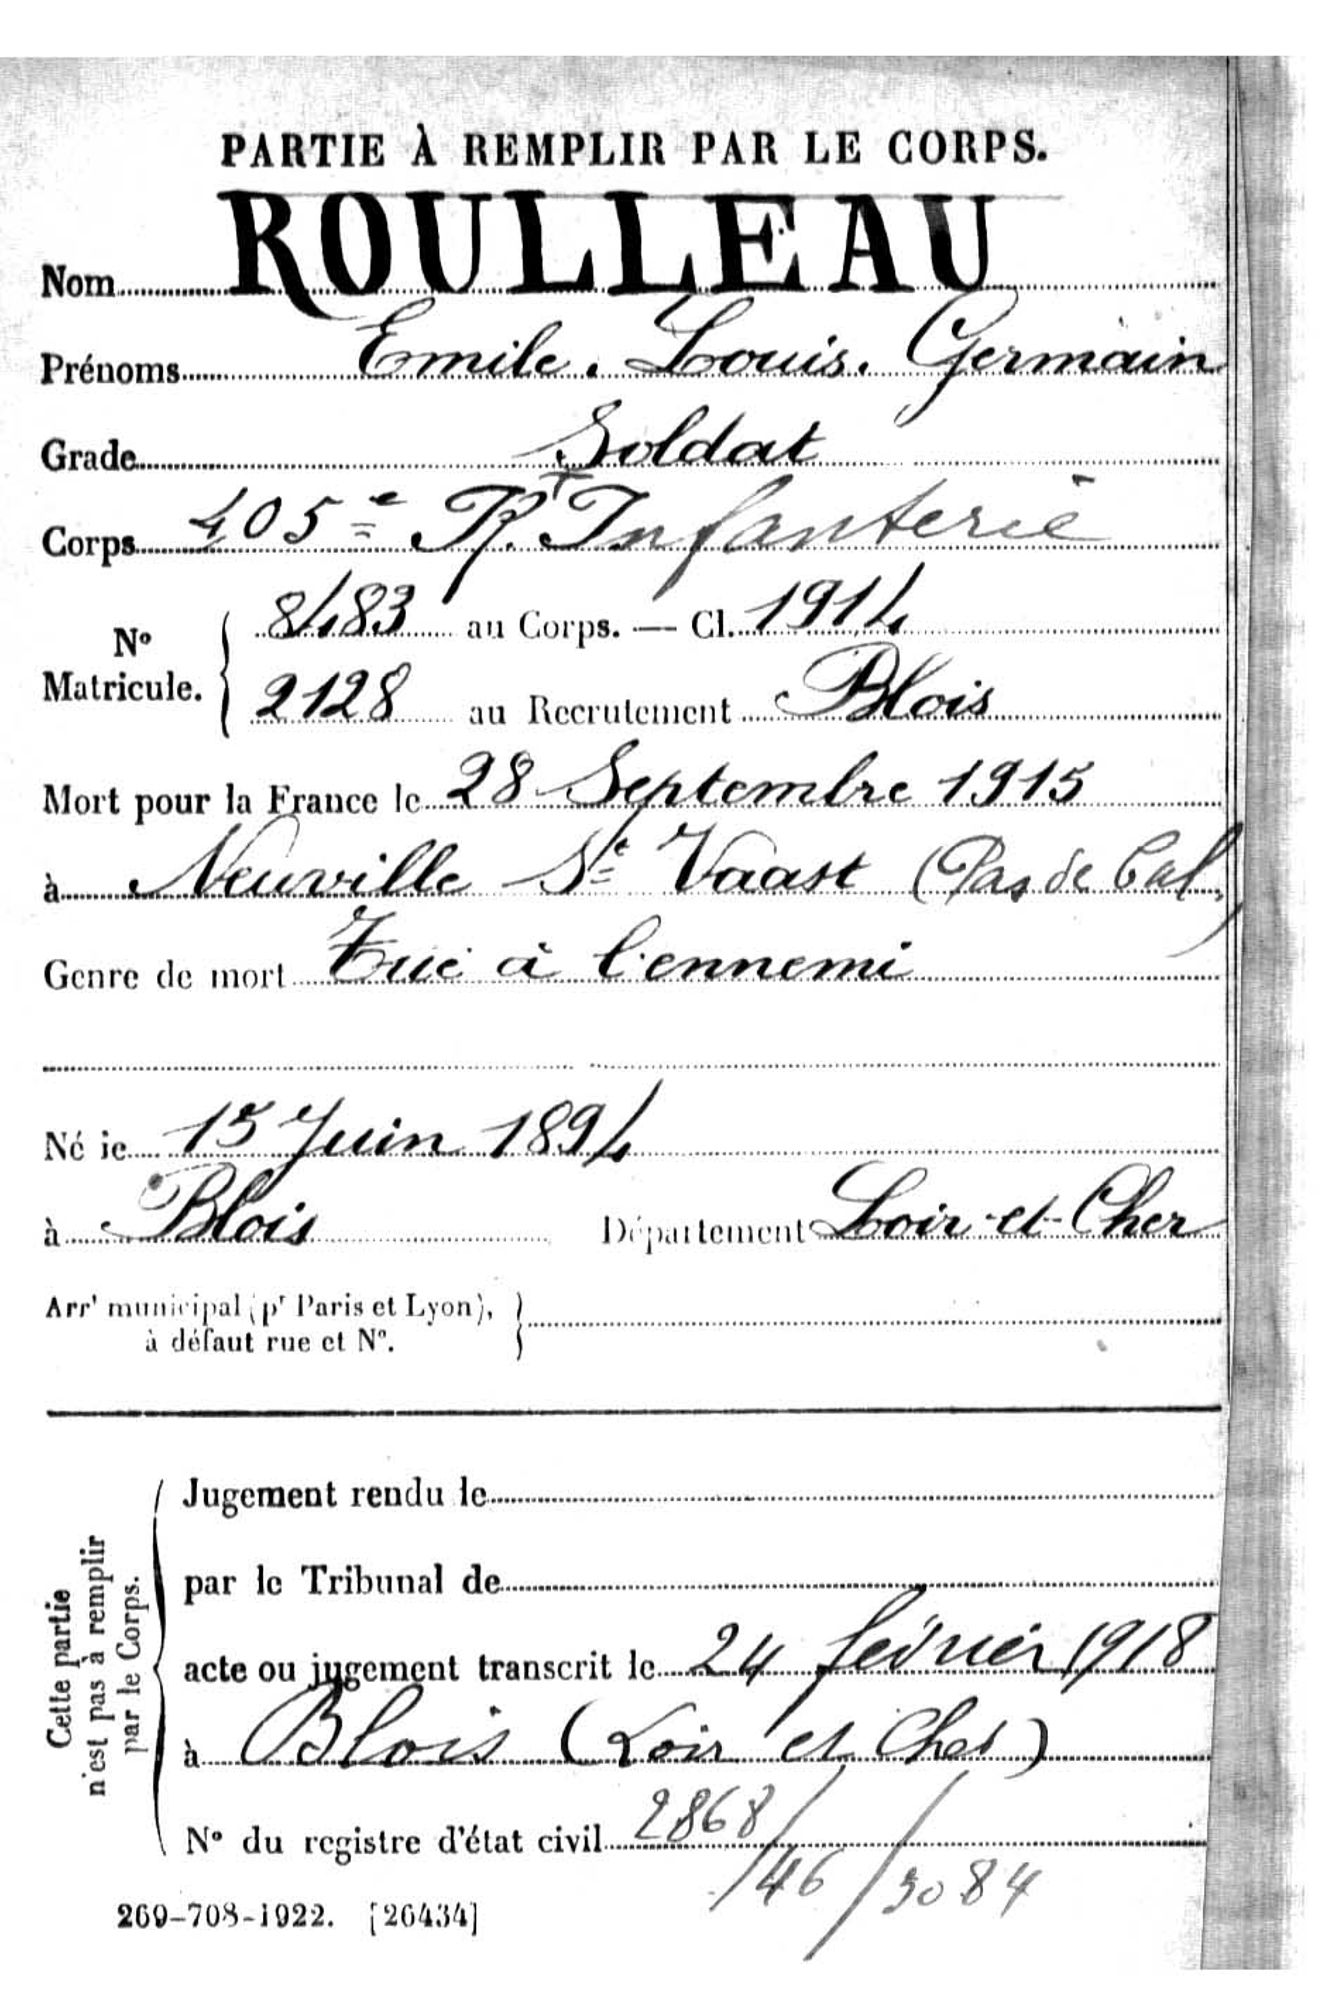 PARTIE À REMPLIR PAR LE CORPS.
Nom ROULLEAU
Prénoms Emile. Louis. Germain
Grade Soldat
Corps 405e R.t Infanterie
No Matricule. { 8483 au Corps. — Cl. 1914
2128 au Recrutement Blois
Mort pour la France le 28 Septembre 1915
à Neuville St Vaast (Pas de Cal.)
Genre de mort Tué à l'ennemi
Né le 15 Juin 1894
à Blois Département Loir-et-Cher
Arrt municipal (pr Paris et Lyon), }
à défaut rue et No.
Cette partie
n'est pas à remplir
par le Corps.
Jugement rendu le
par le Tribunal de
acte ou jugement transcrit le 24 février 1918
à Blois (Loir et Cher)
No du registre d'état civil 2868
/46/3084
269-708-1922. [26434]